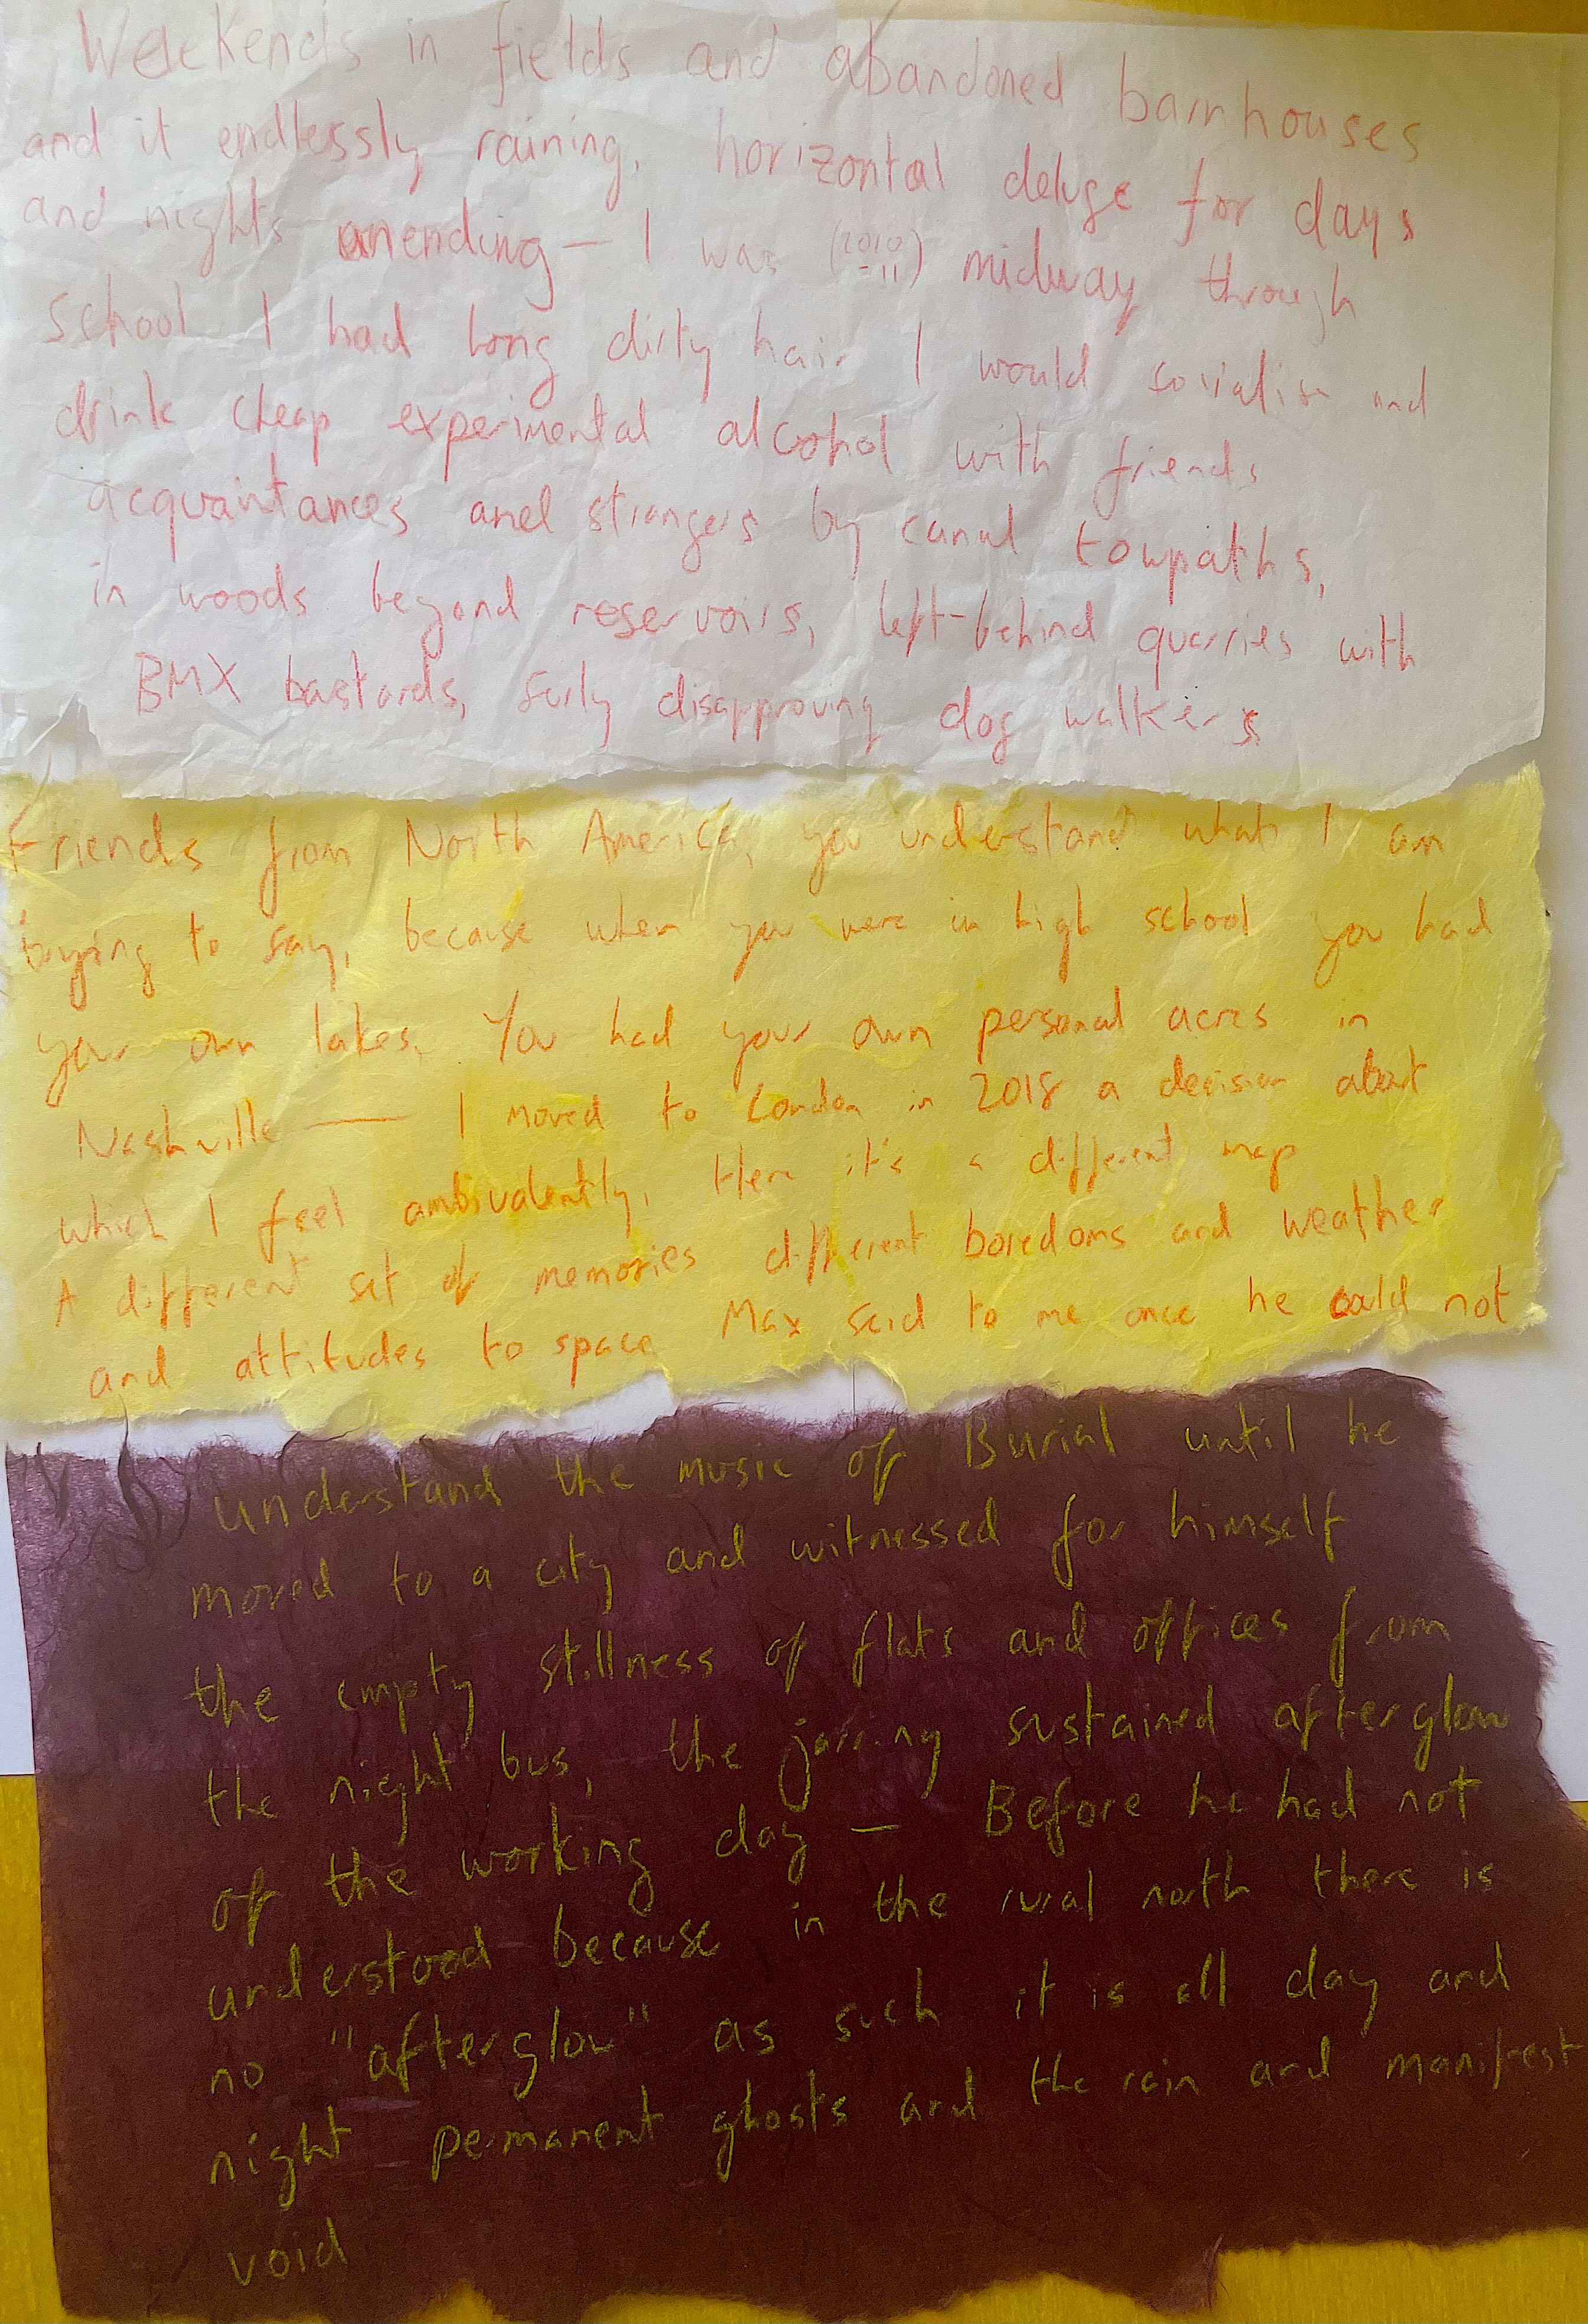 Weekends in fields and abandoned barnhouses
and it endlessly raining, horizontal deluge for days
and nights unending — I was (2010-11) midway through
school I had long dirty hair I would socialise and
drink cheap experimental alcohol with friends
acquaintances and strangers by canal towpaths,
in woods beyond reservoirs, left-behind quarries with
BMX bastards, surly disapproving dog walkers
Friends from North America, you understand what I am
trying to say, because when you were in high school you had
your own lakes. You had your own personal acres in
Nashville — I moved to London in 2018 a decision about
which I feel ambivalently, Here it's a different map
A different set of memories different boredoms and weather
and attitudes to space Max said to me once he could not
understand the music of Burial until he
moved to a city and witnessed for himself
the empty stillness of flats and offices from
the night bus, the jarring sustained afterglow
of the working day — Before he had not
understood because in the rural north there is
no "afterglow" as such it is all day and
night permanent ghosts and the rain and manifest
void